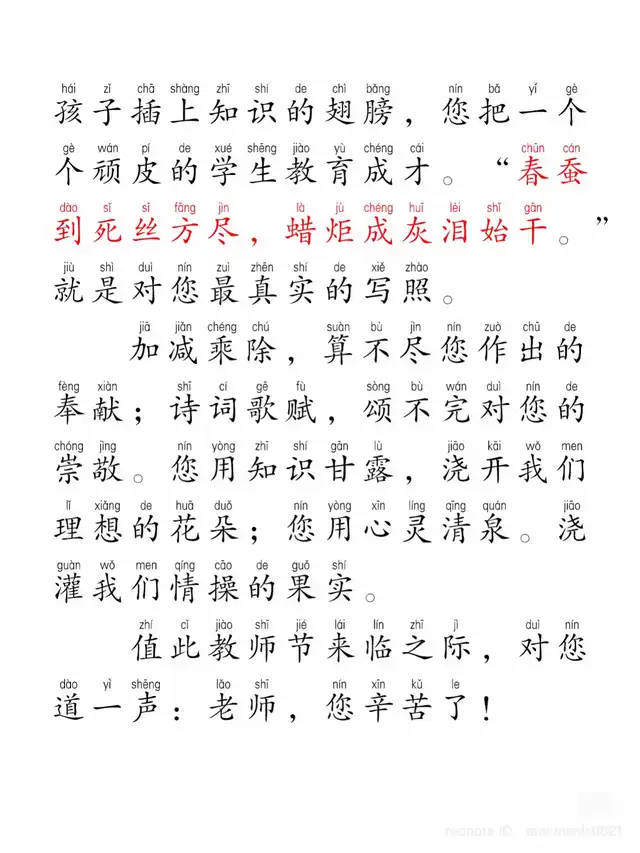 hái zǐ chā shàng zhī shí de chì bǎng nín bǎ yī gè
孩子插上知识的翅膀，您把一个
gè wán pí de xué shēng jiào yù chéng cái chūn cán
个顽皮的学生教育成才。“春蚕
dào sǐ sī fāng jìn là jù chéng huī lèi shǐ gān
到死丝方尽，蜡炬成灰泪始干。”
jiù shì duì nín zuì zhēn shí de xiě zhào
就是对您最真实的写照。
jiā jiǎn chéng chú suàn bù jìn nín zuò chū de
加减乘除，算不尽您作出的
fèng xiàn shī cí gē fù sòng bù wán duì nín de
奉献；诗词歌赋，颂不完对您的
chóng jìng nín yòng zhī shí gān lù jiāo kāi wǒ men
崇敬。您用知识甘露，浇开我们
lǐ xiǎng de huā duǒ nín yòng xīn líng qīng quán jiāo
理想的花朵；您用心灵清泉。浇
guàn wǒ men qíng cāo de guǒ shí
灌我们情操的果实。
zhí cǐ jiào shī jié lái lín zhī jì duì nín
值此教师节来临之际，对您
dào yì shēng lǎo shī nín xīn kǔ le
道一声：老师，您辛苦了！